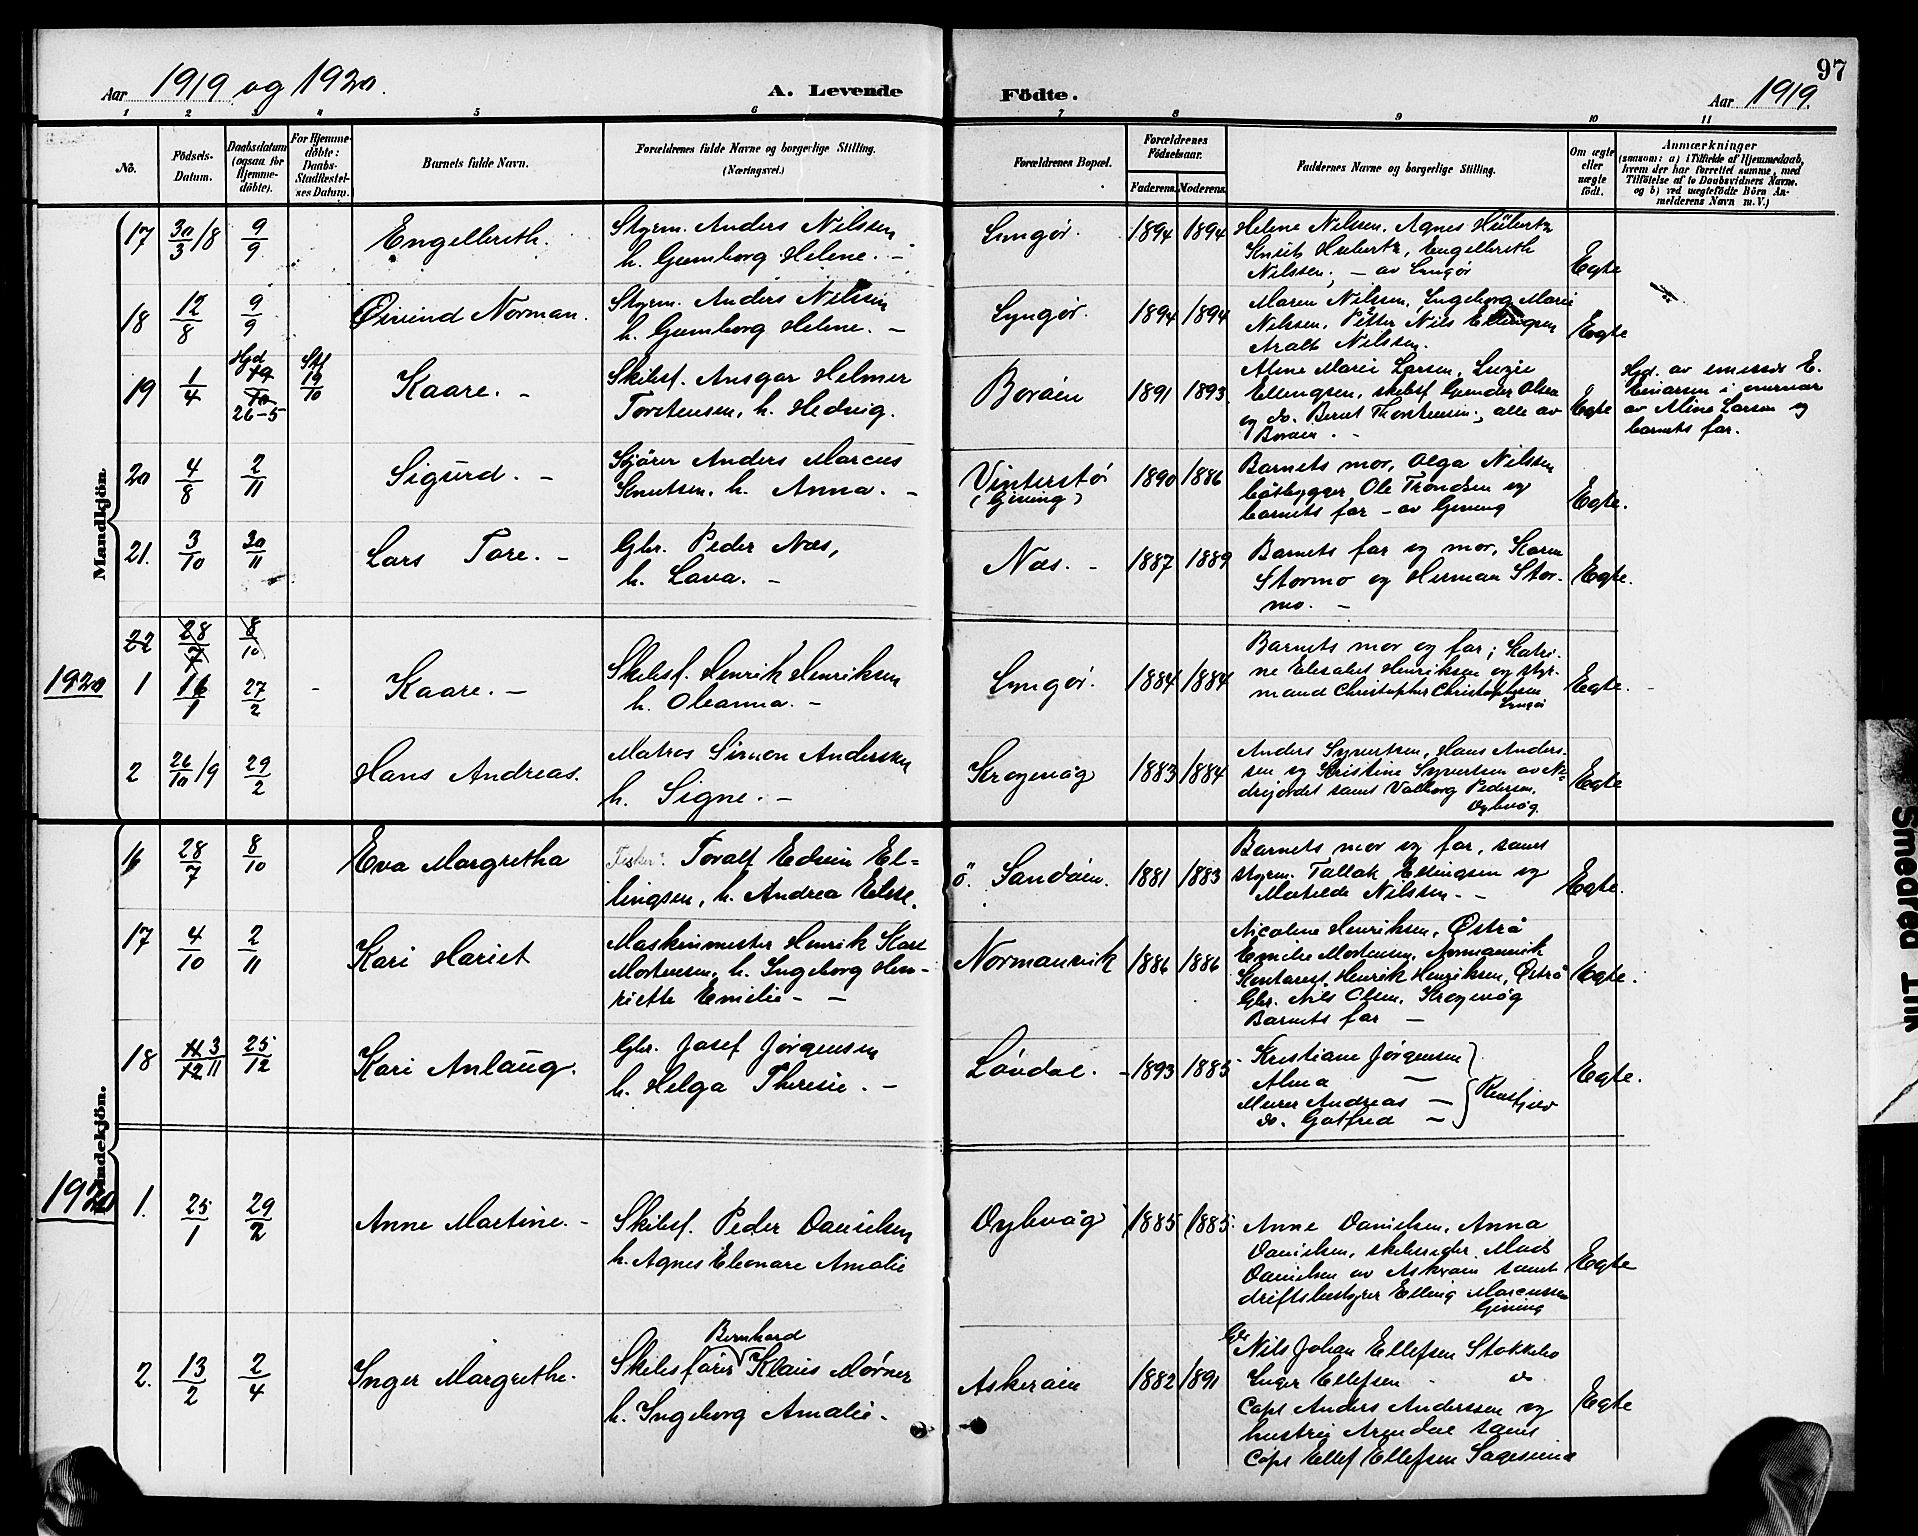 Aar 1919 og 1920. A. Levende Födte. Aar 1919. 97
1 2 3 4 5 6 7 8 9 10 11
No.
Födsels-Datum.
Daabsdatum (ogsaa for Hjemme-döbte).
For Hjemme-döbte: Daabs-Stadfæstel-ses Datum.
Barnets fulde Navn.
Forældrenes fulde Navne og borgerlige Stilling. (Næringsvei.)
Forældrenes Bopæl.
Forældrenes Födselsaar.
Faderens. Moderens.
Faddernes Navne og borgerlige Stilling.
Om ægte eller uægte födt.
Anmærkninger
(saasom: a) i Tilfælde af Hjemmedaab, hvem der har forrettet samme, med Tilföielse af to Daabsvidners Navne, og b) ved uægtefödte Börn An-melderens Navn m. V.)
Mandkjön
17 30/3 18 9/9 Engelbreth.
Styrm. Anders Nilsen
h. Gumborg Helene. –
Lyngør. 1894 1894
Helene Nilsen, Agnes Hübertz
Knut Hubertz, Engelbreth
Nilssen, – av Lyngør
Egte
18 12/8 9/9 Øivind Norman.
Styrm. Anders Nilsen
h. Gumborg Helene. –
Lyngør. 1894 1894
Maren Nilsen, Ingeborg Marie
Nilssen, Petter Nils Ellingsen
Aralt Nilssen.
Egte
19 1/4 Hjd 26-5 Stf 19/10 Kaare. –
Skibsf. Ansgar Helmer
Torstensen, h. Hedvig.
Borøen 1891 1893
Aline Marie Larsen, Luzie
Ellingsen, skibsf. Gunder Olsen
og do. Bernt Thorstensen, alle av
Borøen. –
Egte
Hjd. av emeritus E.
Einarsen i nærvær
av Aline Larsen og
barnets far.
20 4/8 2/11 Sigurd. –
Skjører Anders Marcus
Knutsen, h. Anna. –
Vinterstø
(Gjeving)
1890 1886
Barnets mor, Olga Nilssen
båtbygger Ole Trondsen og
barnets far – av Gjeving
Egte.
21. 3/10 30/11 Lars Tore. –
Gbr. Peder Næs,
h. Lava. –
Næs. – 1887 1889
Barnets far og mor, Karen
Stormo og Herman Stor-
mo. –
Egte.
22 28/7 8/10
1920 1 16/1 27/2 – Kaare. –
Skibsf. Henrik Henriksen
h. Oleanna. –
Lyngør. 1884 1884
Barnets mor og far; Katri-
ne Elisabet Henriksen og styr-
mand Christopher Christophersen
Lyngør
Egte. –
2 26/10 19 29/2 Hans Andreas.
Matros Simon Anderssen
h. Signe. –
Krogevåg 1883 1884
Anders Syvertsen, Hans Anders-
sen og Kristine Syvertsen av Ne-
drejordet samt Valborg Pedersen,
Dybvåg.
Egte
Kvindekjön.
16 28/7 8/10 Eva Margretha
Fisker. Toralf Edvin El-
lingsen, h. Andrea Elise.
ö. Sandøen. 1881 1883
Barnets mor og far, samt
styrm. Tallak Ellingsen og
Matilde Nilssen. –
Egte.
17 4/10 2/11 Kari Hariet
Maskinmester Henrik Karl
Mortensen, h. Ingeborg Hen-
riette Emilie – –
Normanvik 1886 1886
Nicoline Henriksen, Østrå
Emilie Mortensen, Normanvik
Kontorest. Henrik Henriksen, Østrå
Gbr. Nils Olsen, Krogevåg
Barnets far –
Egte.
18 3/11 25/12 Kari Anlaug.
Gbr. Josef Jørgensen
h. Helga Theresie. –
Løvdal. – 1893 1885
Kristiane Jørgensen
Alma –
Murer Andreas –
do. Gotfred –
Egte.
1920 1. 25/1 29/2 Anne Martine. –
Skibsf. Peder Danielsen
h. Agnes Eleonare Amalie
Dybvåg 1885 1885.
Anne Danielsen, Anna
Danielsen, skibsreder Mads
Danielsen av Askerøen samt
driftsbestyrer Elling Marcussen
Gjeving
Egte
2. 13/2 2/4 Inger Margrethe.
Bernhard
Skibsfører Klaus Mørner
h. Ingeborg Amalie.
Askerøen 1882 1891
Gbr Nils Johan Ellefsen Stokkebo
Inger Ellefsen – do
Capt Anders Anderssen og
hustru Arendal samt
Capt Ellef Ellefsen Sagesund
Egte
Smeared Ink